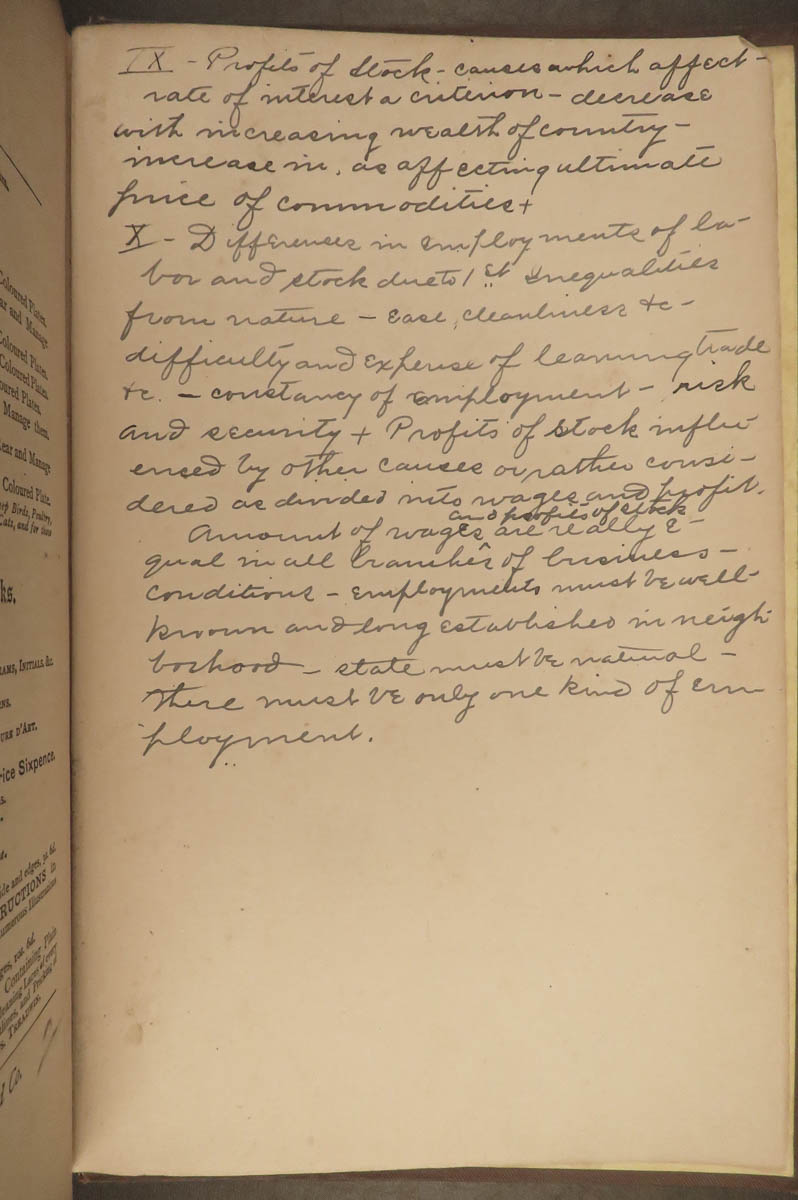 IX - Profits of Stock - causes which affect -
rate of interest a criterion - decrease
with increasing wealth of country -
increase in, as affecting ultimate
price of commodities +
X - Differences in employments of la-
bor and stock due to 1st Inequalities
from nature - Ease, cleanliness &c -
difficulty and expense of learning trade
&c. - constancy of employment - risk
and security + Profits of stock influ-
enced by other causes or rather consi-
dered as divided into wages and profit.
and profits of stock
Amount of wages are really e-
qual in all branches of business -
conditions - employments must be well-
known and long established in neigh-
borhood - state must be natural -
There must be only one kind of em-
ployment.
Coloured Plates.
ear and Manage
Coloured Plates.
Coloured Plates.
oured Plates.
Manage them.
Rear and Manage
Coloured Plate.
Birds, Poultry,
Cats, and for these
ks.
RAMS, INITIALS, &c.
URE D'ART.
rice Sixpence.
ide and edges, 2s. 6d.
RUCTIONS in
umerous Illustrations
ges, 2s. 6d.
Containing Plain
leaning Laces of every
S. TREADWIN.
d Co.